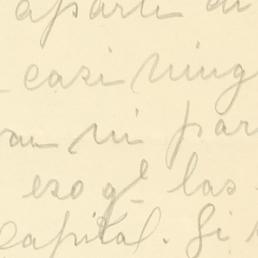 aparte de
casi ning
an ni par
eso qe las
capital. Si